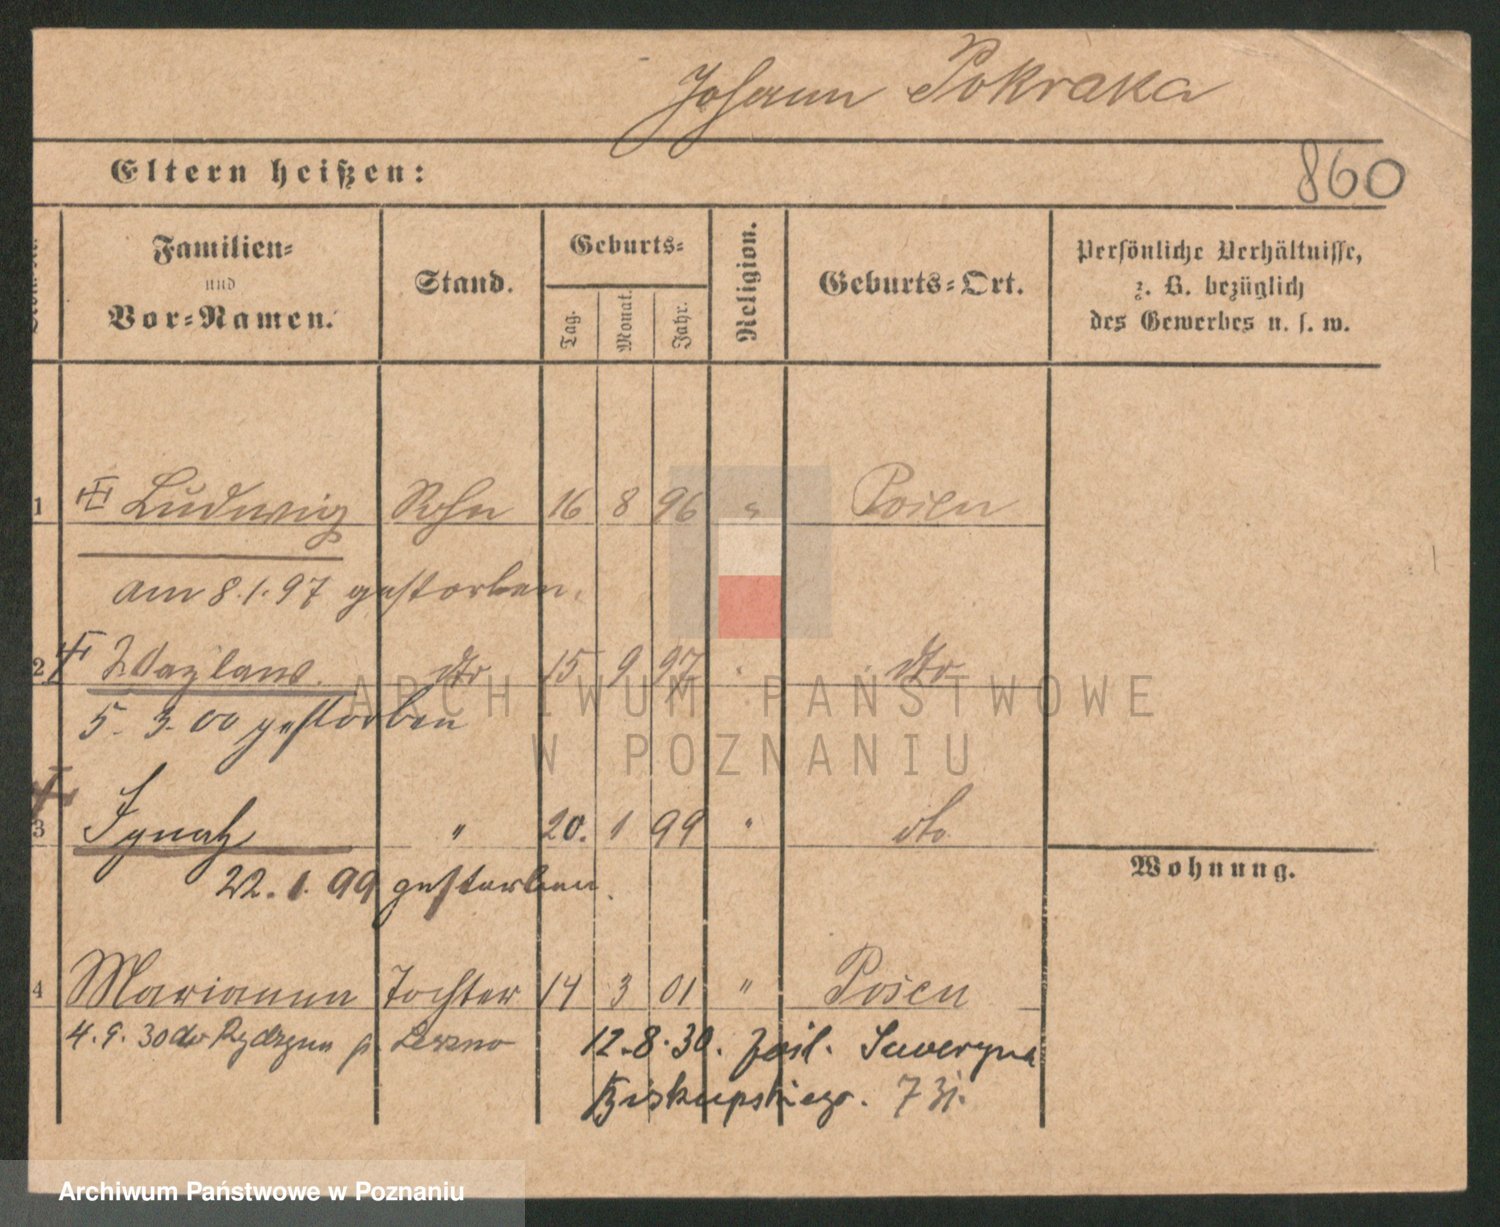 Johann Pokraka
860
Eltern heißen:
Familien=
und
Vor=Namen.
Stand.
Geburts=
Tag.
Monat.
Jahr.
Religion.
Geburts=Ort.
Persönliche Verhältnisse,
z. B. bezüglich
des Gewerbes u. s. w.
1 Ludwig Sohn 16 8 96 " Posen
am 8.1.97 gestorben.
2 Wazlaw. dto 15 9 97 " dto
5. 3. 00 gestorben
3 Ignatz " 20. 1 99 " dto
22. 1. 99 gestorben.
Wohnung.
4 Marianna Tochter 14 3 01 " Posen
4. 9. 30 do Rydzyna p. Leszno
12. 8. 30. Seweryna
Biskupskiego. 7
ARCHIWUM PAŃSTWOWE
W POZNANIU
Archiwum Państwowe w Poznaniu